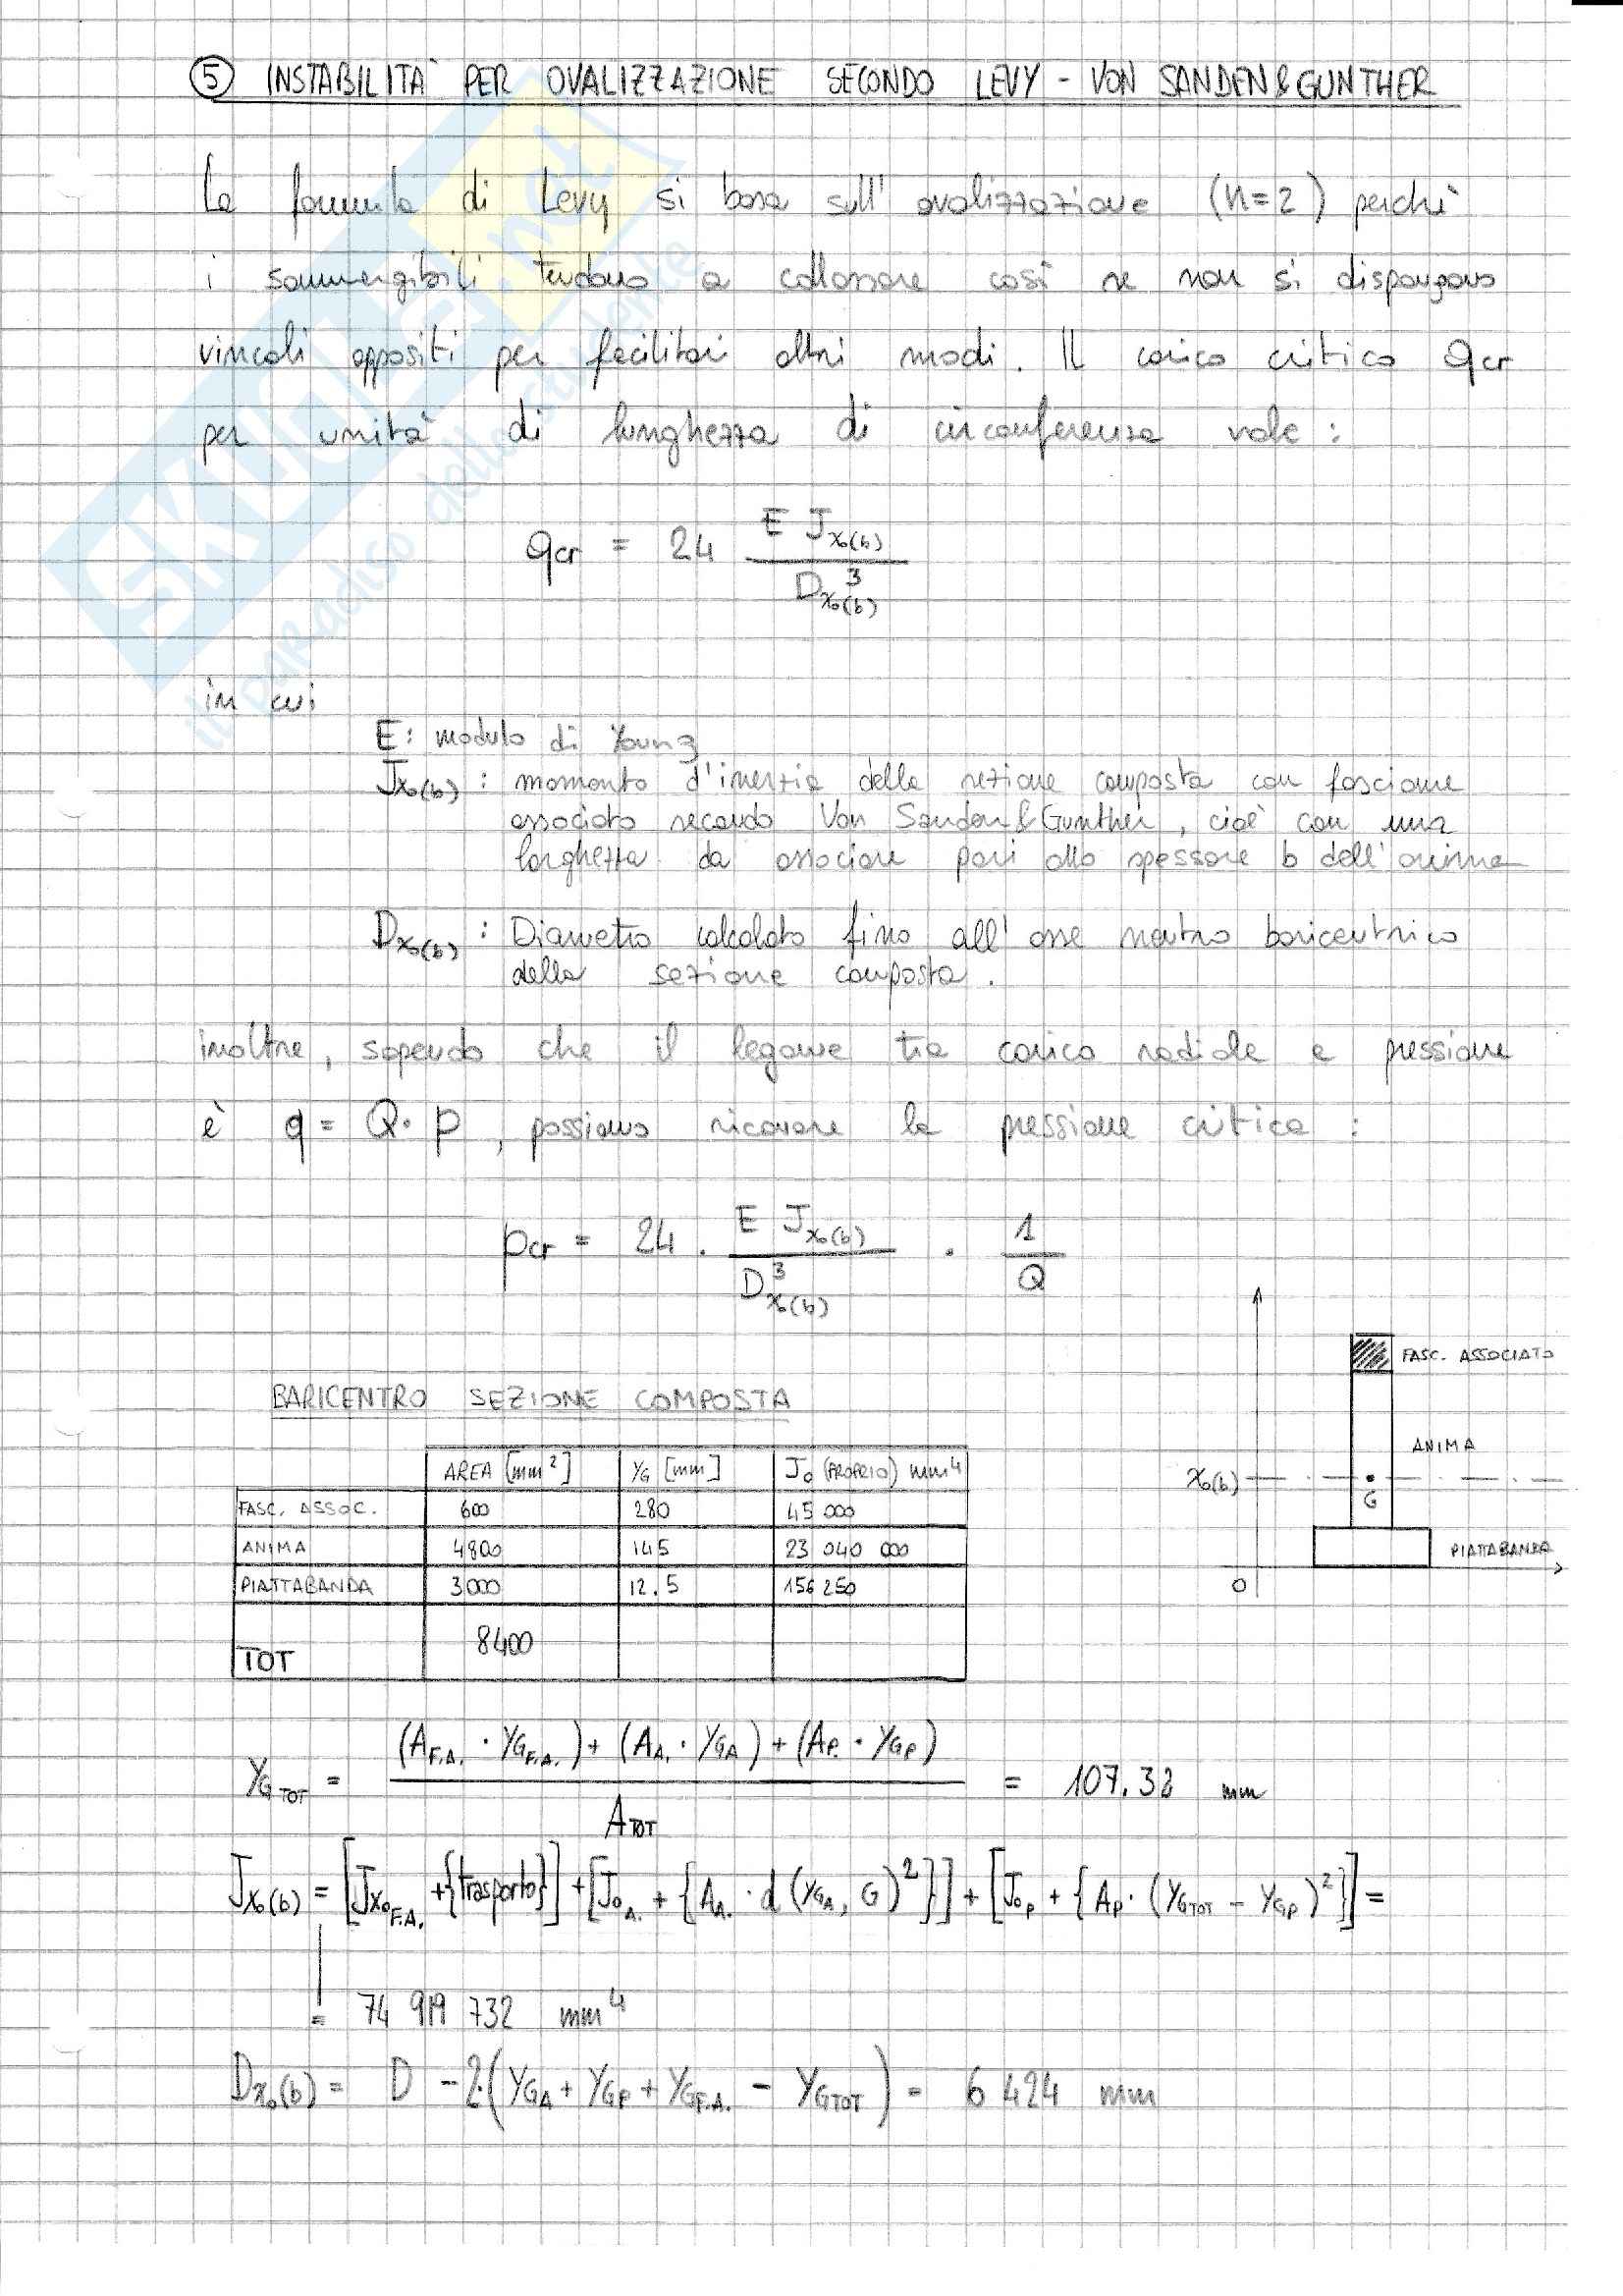 ⑤ INSTABILITA' PER OVALIZZAZIONE SECONDO LEVY - VON SANDEN & GUNTHER
La formula di Levy si basa sull'ovalizzazione (n=2) perchè
i sommergibili tendono a collassare così se non si dispongono
vincoli appositi per facilitari altri modi. Il carico critico qcr
per unità di lunghezza di circonferenza vale:
qcr = 24 E Jx₀(b) / Dx₀(b)³
in cui
E: modulo di Young
Jx₀(b): momento d'inerzia della sezione composta con fasciame
associato secondo Von Sanden & Gunther, cioè con una
larghezza da associare pari allo spessore b dell'anima
Dx₀(b): Diametro calcolato fino all'asse neutro baricentrico
della sezione composta.
inoltre, sapendo che il legame tra carico radiale e pressione
è q = Q · p, possiamo ricavare la pressione critica:
pcr = 24 · E Jx₀(b) / D³x₀(b) · 1 / Q
FASC. ASSOCIATO
ANIMA
x₀(b)
G
PIATTABANDA
O
BARICENTRO SEZIONE COMPOSTA
AREA [mm²] YG [mm] J₀ (PROPRIO) mm⁴
FASC. ASSOC. 600 280 45 000
ANIMA 4800 145 23 040 000
PIATTABANDA 3000 12.5 156 250
TOT 8400
YG TOT = (AF.A. · YGF.A.) + (AA. · YGA) + (AP. · YGP) / ATOT = 107.32 mm
Jx₀(b) = [Jx₀F.A. + {trasporto}] + [J₀A. + {AA. · d(YGA, G)²}] + [J₀P + {AP · (YGTOT - YGP)²}] =
= 74 919 732 mm⁴
Dx₀(b) = D - 2·(YGA + YGP + YGF.A. - YGTOT) = 6 424 mm
SKUOLA.net
il paradiso dello studente